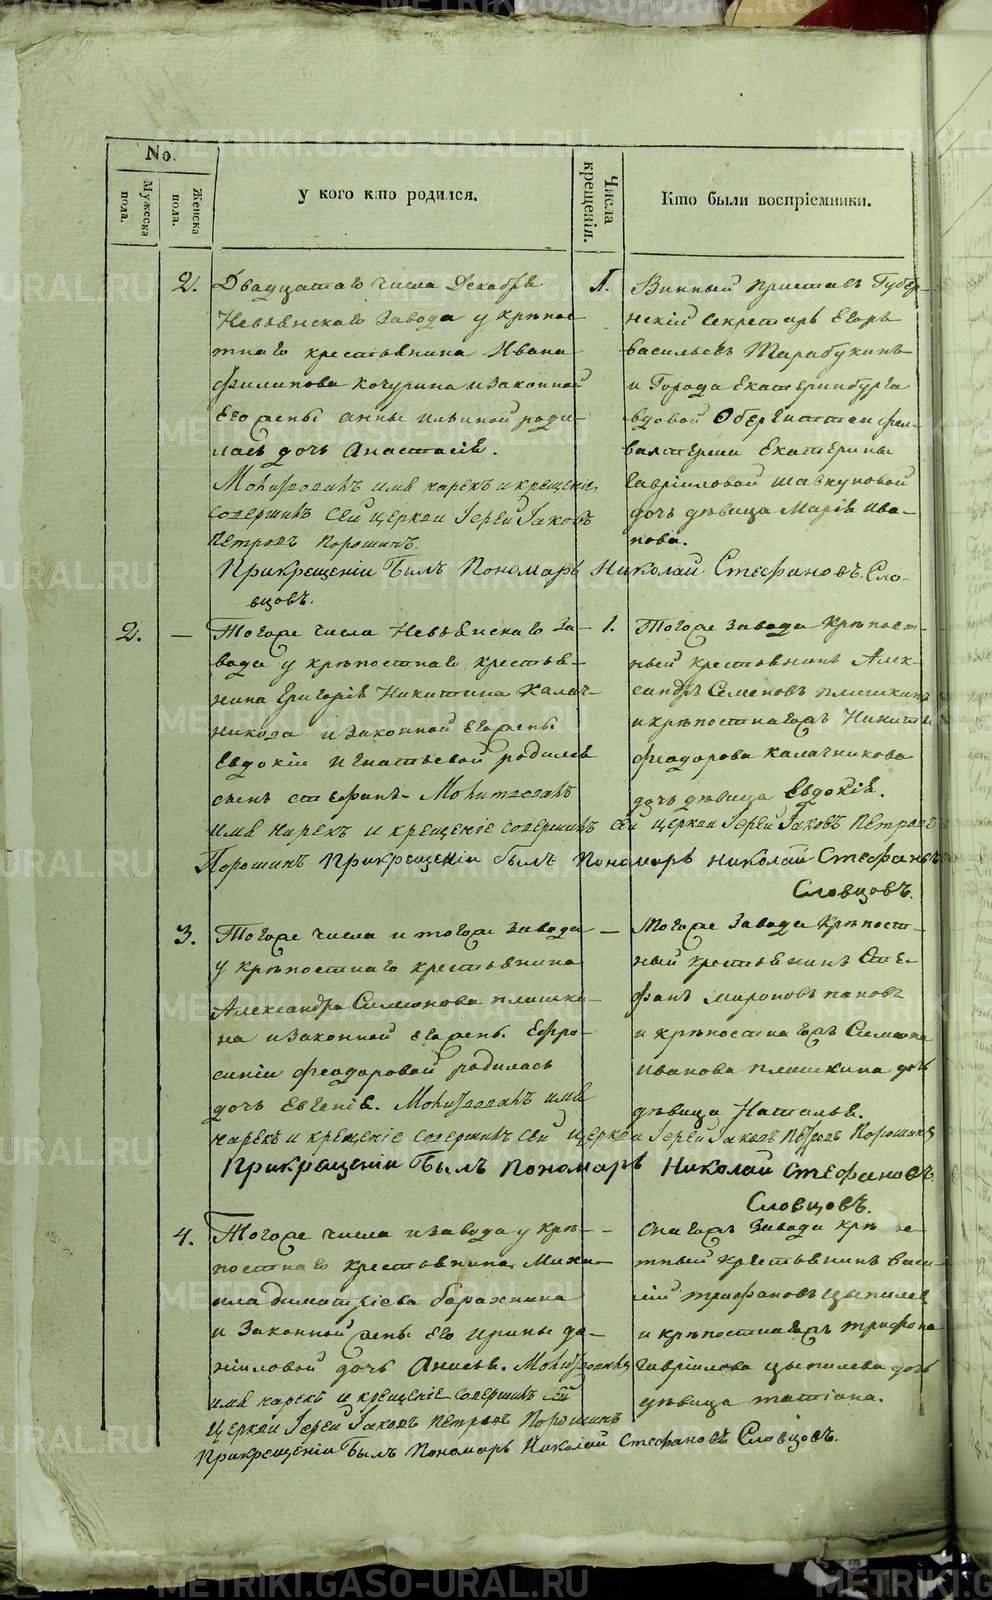 METRIKI.GASO-URAL.RU
No.
Мужеска пола.
Женска пола.
у кого кто родился.
Числа крещенія.
Кто были воспріемники.
2.
Двадцатаго числа Декабря
Невьянскаго Завода у крѣпос-
тнаго крестьянина Ивана
Филипова Кочурина и законной
Его жены Анны Ильиной роди-
лась дочь Анастасія.
Молитвовалъ имя нарекъ и крещеніе
совершилъ сей церкви Іерей Іаковъ
Петровъ Порошинъ.
При крещеніи былъ Пономарь Николай Стефановъ Сло-
вцовъ.
1.
Винный приставъ Губер-
нскій секретарь Егоръ
Васильевъ Тарабукинъ
и Города Екатеринбурга
вдовой Обергиттенфер-
валтерши Екатерины
Гавріиловой
дочь дѣвица Марія Ива-
нова.
2.
—
Тогоже числа Невьянскаго За-
вода у крѣпостнаго крестья-
нина Григорія Никитина Калач-
никова и законной Его жены
Евдокіи Игнатьевой родился
сынъ Стефанъ. Молитвовалъ
имя нарекъ и крещеніе совершилъ сей церкви Іерей Іаковъ Петровъ
Порошинъ При крещеніи былъ Пономарь Николай Стефановъ
Словцовъ.
1.
Тогоже завода Крѣпост-
ный крестьянинъ Алек-
сандръ Семеновъ Плишкинъ
и крѣпостнагожъ Никиты
Феодорова Калачникова
дочь дѣвица Евдокія.
3.
Тогоже числа и тогоже завода
у крѣпостнаго крестьянина
Александра Симеонова Плишки-
на и законной его жены Ефро-
синіи Феодоровой родилась
дочь Евгенія. Молитвовалъ имя
нарекъ и крещеніе совершилъ сей церкви Іерей Іаковъ Петровъ Порошинъ
При крещеніи былъ Пономарь Николай Стефановъ
Словцовъ.
—
Тогоже Завода Крѣпост-
ный крестьянинъ Сте-
фанъ Мироновъ Паповъ
и крѣпостнагожъ Симеона
Иванова Плишкина дочь
дѣвица Наталья.
4.
Тогоже числа и завода у крѣ-
постнаго крестьянина Миха-
ила Димитріева
и Законной жены Его Ирины Да-
ніиловой дочь Анисья. Молитвовалъ
имя нарекъ и крещеніе совершилъ сей
Церкви Іерей Іаковъ Петровъ Порошинъ
При крещеніи былъ Пономарь Николай Стефановъ Словцовъ.
—
Онагожъ Завода крѣпос-
тный крестьянинъ Васи-
лій Трифоновъ Цыпилевъ
и крѣпостнагожъ Трифона
Гавріилова Цыпилева дочь
дѣвица Татіана.